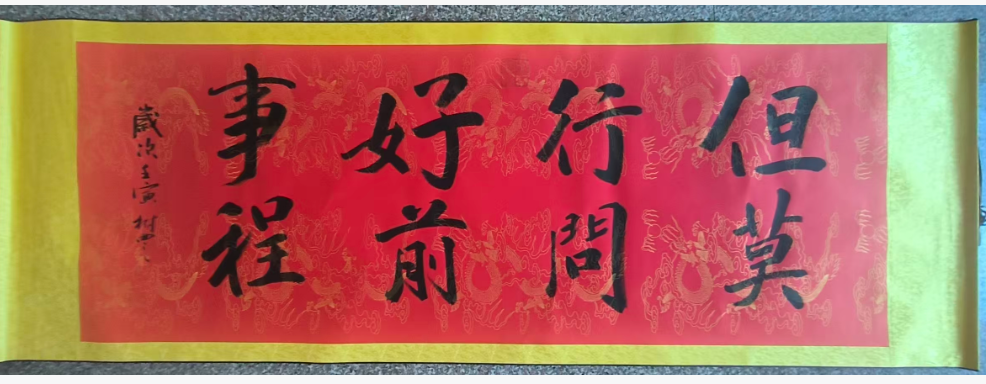 但行好事
莫問前程
歲次壬寅